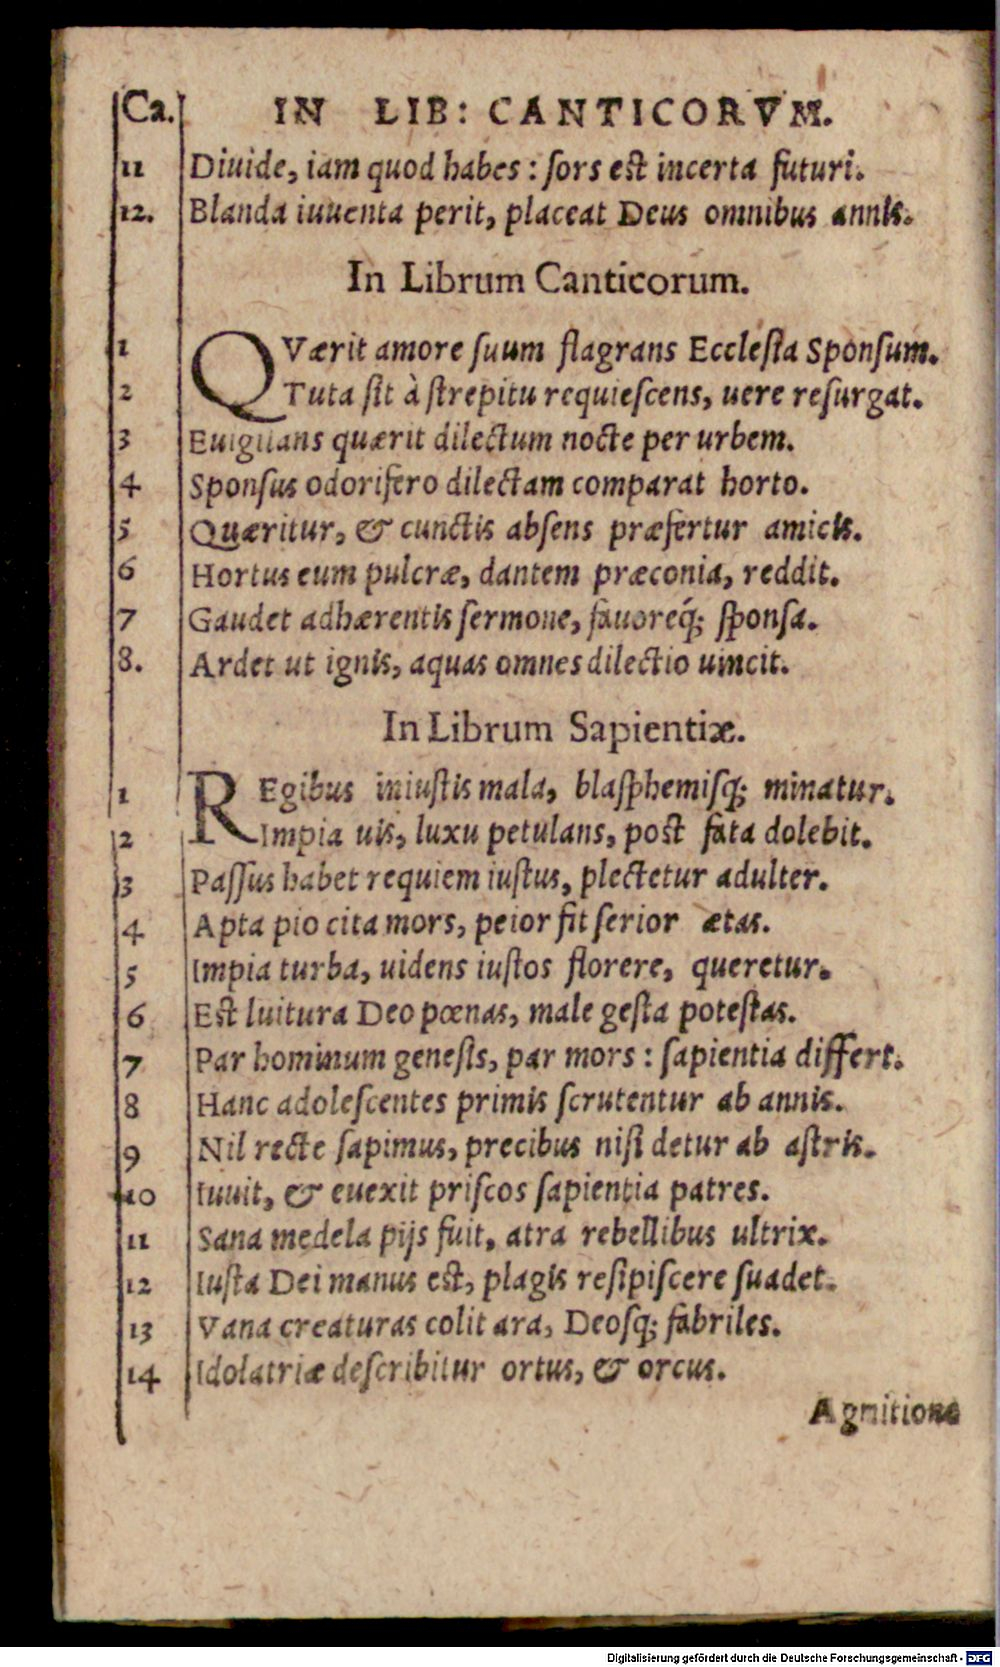 Ca. IN LIB: CANTICORVM.
11 Diuide, iam quod habes : ſors est incerta futuri.
12. Blanda iuuenta perit, placeat Deus omnibus annis.
In Librum Canticorum.
1 QVærit amore ſuum flagrans Eccleſia Sponſum.
2 Tuta ſit à ſtrepitu requieſcens, uere reſurgat.
3 Euigilans quærit dilectum nocte per urbem.
4 Sponſus odorifero dilectam comparat horto.
5 Quæritur, & cunctis abſens præfertur amicis.
6 Hortus eum pulcræ, dantem præconia, reddit.
7 Gaudet adhærentis ſermone, fauoreq́; ſponſa.
8. Ardet ut ignis, aquas omnes dilectio uincit.
In Librum Sapientiæ.
1 REgibus iniuſtis mala, blaſphemiſq; minatur.
2 Impia uis, luxu petulans, post fata dolebit.
3 Paſſus habet requiem iuſtus, plectetur adulter.
4 Apta pio cita mors, peior fit ſerior ætas.
5 Impia turba, uidens iuſtos florere, queretur.
6 Est luitura Deo pœnas, male geſta poteſtas.
7 Par hominum geneſis, par mors : ſapientia differt.
8 Hanc adoleſcentes primis ſcrutentur ab annis.
9 Nil recte ſapimus, precibus niſi detur ab aſtris.
10 Iuuit, & euexit priſcos ſapientia patres.
11 Sana medela pijs fuit, atra rebellibus ultrix.
12 Iuſta Dei manus est, plagis reſipiſcere ſuadet.
13 Vana creaturas colit ara, Deoſq; fabriles.
14 Idolatriæ deſcribitur ortus, & orcus.
Agnitione
Digitalisierung gefördert durch die Deutsche Forschungsgemeinschaft - DFG